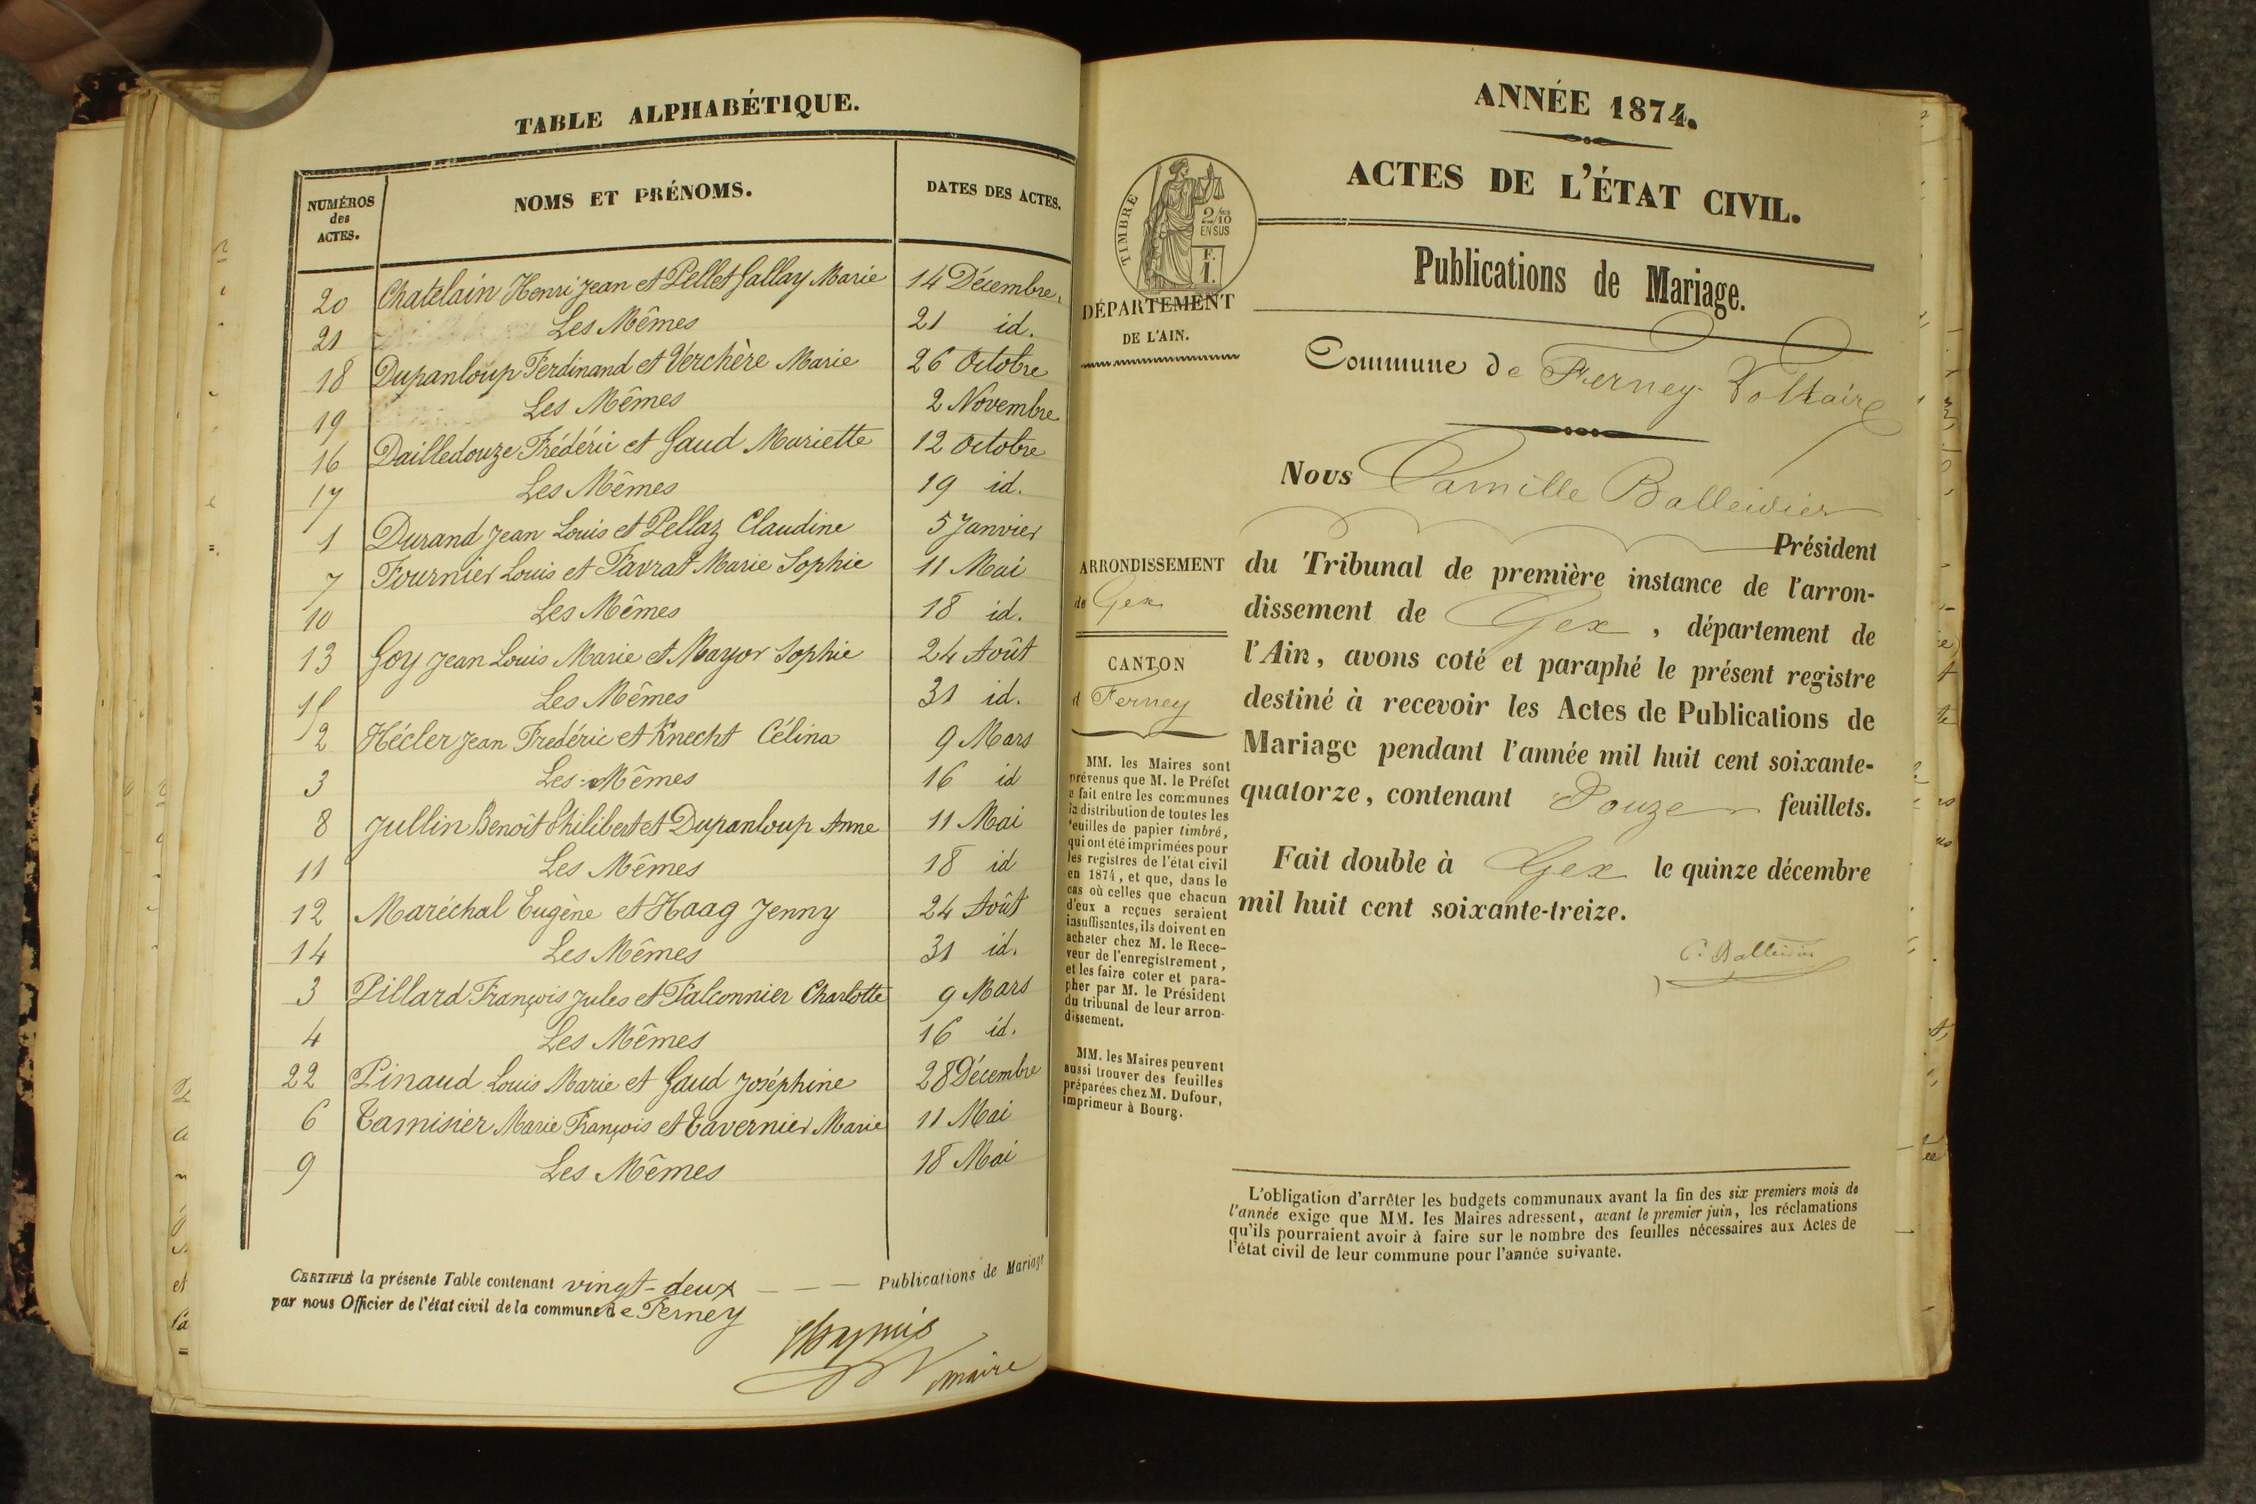 TABLE ALPHABÉTIQUE.
NUMÉROS des ACTES. NOMS ET PRÉNOMS. DATES DES ACTES.
20 Chatelain Henri Jean et Pellet Gallay Marie 14 Décembre.
21 Les Mêmes 21 id.
18 Dupanloup Ferdinand et Verchère Marie 26 Octobre
19 Les Mêmes 2 Novembre
16 Dailledouze Frédéric et Gaud Mariette 12 Octobre
17 Les Mêmes 19 id.
1 Durand Jean Louis et Pellaz Claudine 5 Janvier
7 Fournier Louis et Favrat Marie Sophie 11 Mai
10 Les Mêmes 18 id.
13 Goy Jean Louis Marie et Mayor Sophie 24 Août
15 Les Mêmes 31 id.
2 Hécler Jean Frédéric et Knecht Célina 9 Mars
3 Les Mêmes 16 id
8 Jullin Benoît Philibert et Dupanloup Anne 11 Mai
11 Les Mêmes 18 id
12 Maréchal Eugène et Haag Jenny 24 Août
14 Les Mêmes 31 id.
3 Pillard François Jules et Falconnier Charlotte 9 Mars
4 Les Mêmes 16 id.
22 Pinaud Louis Marie et Gaud Joséphine 28 Décembre
6 Tamisier Marie François et Tavernier Marie 11 Mai
9 Les Mêmes 18 Mai
CERTIFIÉ la présente Table contenant vingt-deux — — Publications de Mariage
par nous Officier de l'état civil de la commune de Ferney
maire
ANNÉE 1874.
ACTES DE L'ÉTAT CIVIL.
TIMBRE
2/10
EN SUS
F.
1.
DÉPARTEMENT
DE L'AIN.
Publications de Mariage.
Commune de Ferney-Voltaire
Nous Camille Balleidier
Président
du Tribunal de première instance de l'arron-
dissement de Gex, département de
l'Ain, avons coté et paraphé le présent registre
destiné à recevoir les Actes de Publications de
Mariage pendant l'année mil huit cent soixante-
quatorze, contenant Douze feuillets.
Fait double à Gex le quinze décembre
mil huit cent soixante-treize.
C. Balleidier
ARRONDISSEMENT
de Gex
CANTON
d Ferney
MM. les Maires sont
prévenus que M. le Préfet
a fait entre les communes
la distribution de toutes les
feuilles de papier timbré,
qui ont été imprimées pour
les registres de l'état civil
en 1874, et que, dans le
cas où celles que chacun
d'eux a reçues seraient
insuffisantes, ils doivent en
acheter chez M. le Rece-
veur de l'enregistrement,
et les faire coter et para-
pher par M. le Président
du tribunal de leur arron-
dissement.
MM. les Maires peuvent
aussi trouver des feuilles
préparées chez M. Dufour,
imprimeur à Bourg.
L'obligation d'arrêter les budgets communaux avant la fin des six premiers mois de
l'année exige que MM. les Maires adressent, avant le premier juin, les réclamations
qu'ils pourraient avoir à faire sur le nombre des feuilles nécessaires aux Actes de
l'état civil de leur commune pour l'année suivante.